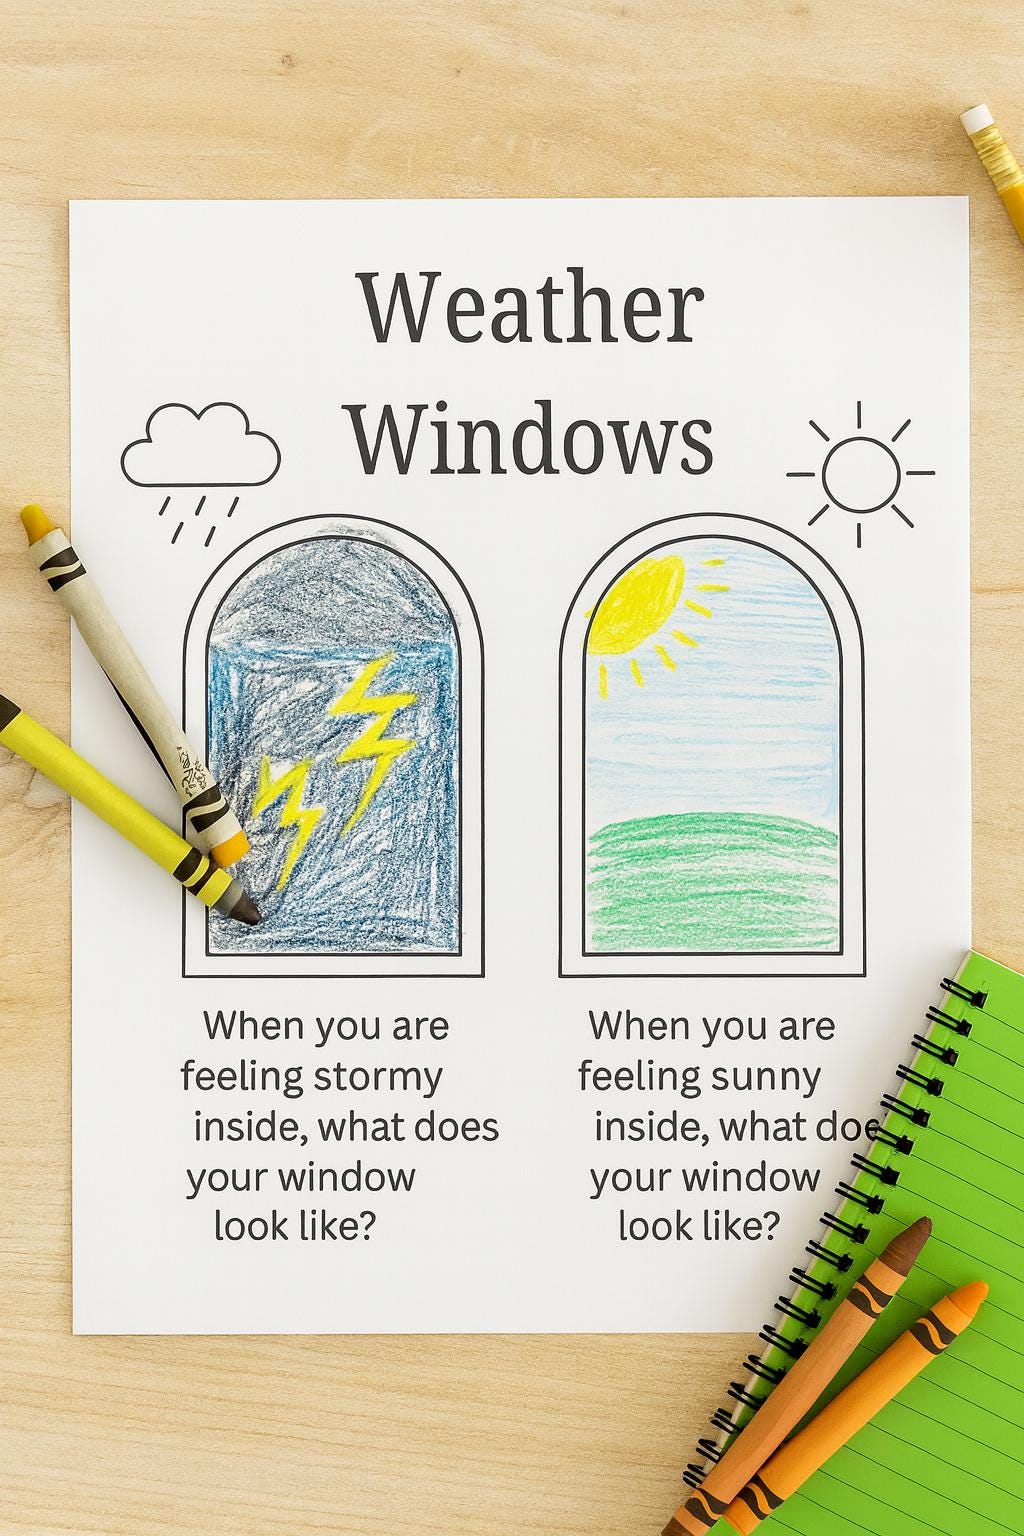 Weather
Windows
When you are
feeling stormy
inside, what does
your window
look like?
When you are
feeling sunny
inside, what doe
your window
look like?